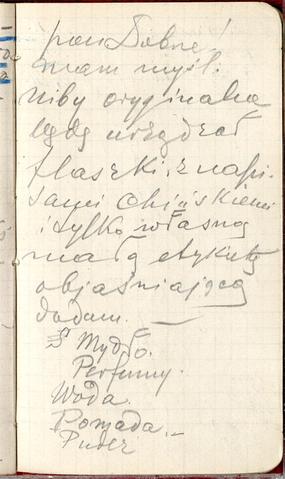 pan Dobre!
mam myśl.
Niby oryginalne
będę urządzał
flaszki z napi-
sami chińskiemi
i tylko własną
małą etykietę
objaśniającą
dodam. —
Mydło.
Perfumy.
Woda.
Pomada.—
Puder